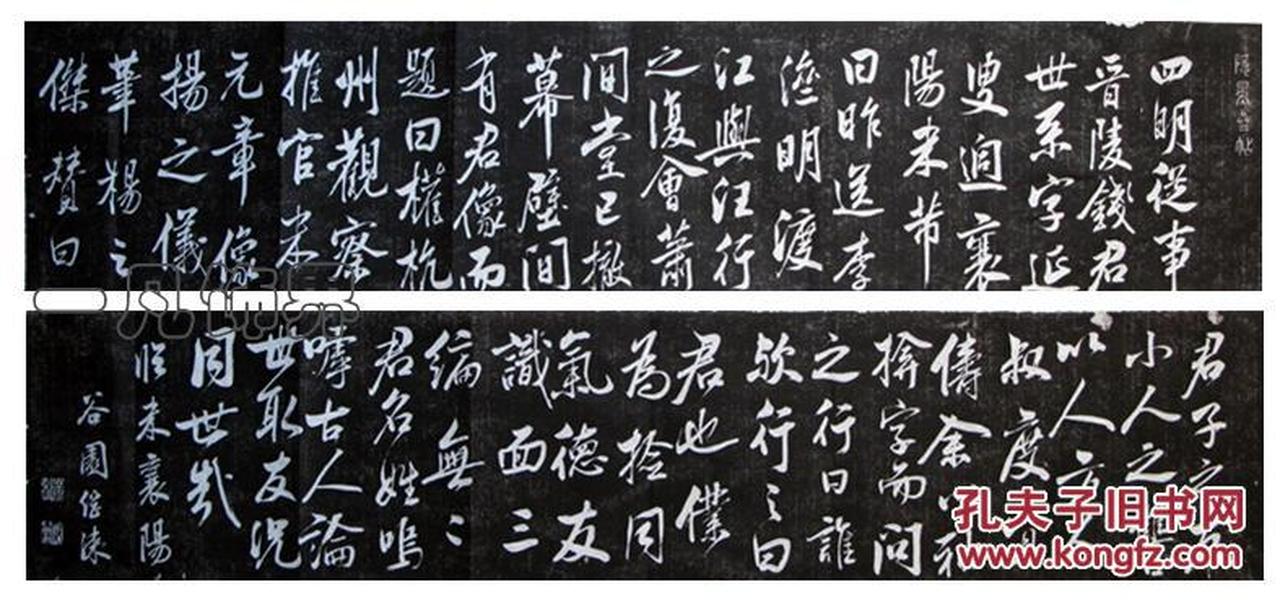 四明從事
晉陵錢君
世系字延
叟適襄
陽米芾
日昨送李
澄明渡
江與汪行
之復會蕭
閒堂已撤
幕壁間
有君像而
題曰權杭
州觀察
推官米
元章像
揚之儀
華楊之
傑贊曰
君子之
小人之
以人
叔度
儔余
捨字而問
之行曰誰
歟行之曰
君也僕
為捨同
氣德友
識面三
編無之
君名姓嗚
嘑古人論
世取友況
同世哉
臨米襄陽
谷園
一凡
孔夫子旧书网
www.kongfz.com